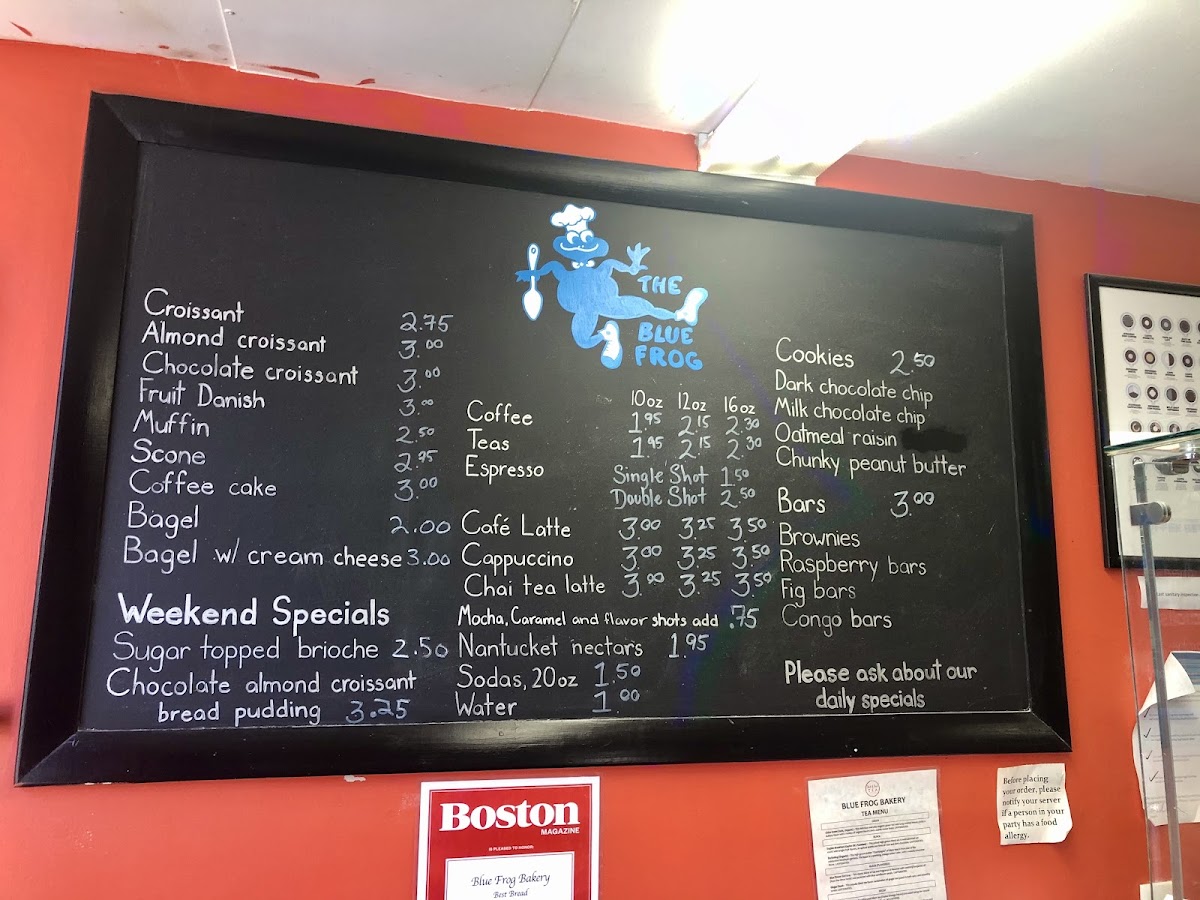 THE
BLUE
FROG
Croissant 2.75
Almond croissant 3.00
Chocolate croissant 3.00
Fruit Danish 3.00
Muffin 2.50
Scone 2.95
Coffee cake 3.00
Bagel 2.00
Bagel w/ cream cheese 3.00
Weekend Specials
Sugar topped brioche 2.50
Chocolate almond croissant
bread pudding 3.25
10oz 12oz 16oz
Coffee 1.95 2.15 2.30
Teas 1.95 2.15 2.30
Espresso Single Shot 1.50
Double Shot 2.50
Café Latte 3.00 3.25 3.50
Cappuccino 3.00 3.25 3.50
Chai tea latte 3.00 3.25 3.50
Mocha, Caramel and flavor shots add .75
Nantucket nectars 1.95
Sodas, 20oz 1.50
Water 1.00
Cookies 2.50
Dark chocolate chip
Milk chocolate chip
Oatmeal raisin
Chunky peanut butter
Bars 3.00
Brownies
Raspberry bars
Fig bars
Congo bars
Please ask about our
daily specials
Boston
MAGAZINE
IS PLEASED TO HONOR:
Blue Frog Bakery
Best Bread
BLUE FROG BAKERY
TEA MENU
Before placing
your order, please
notify your server
if a person in your
party has a food
allergy.